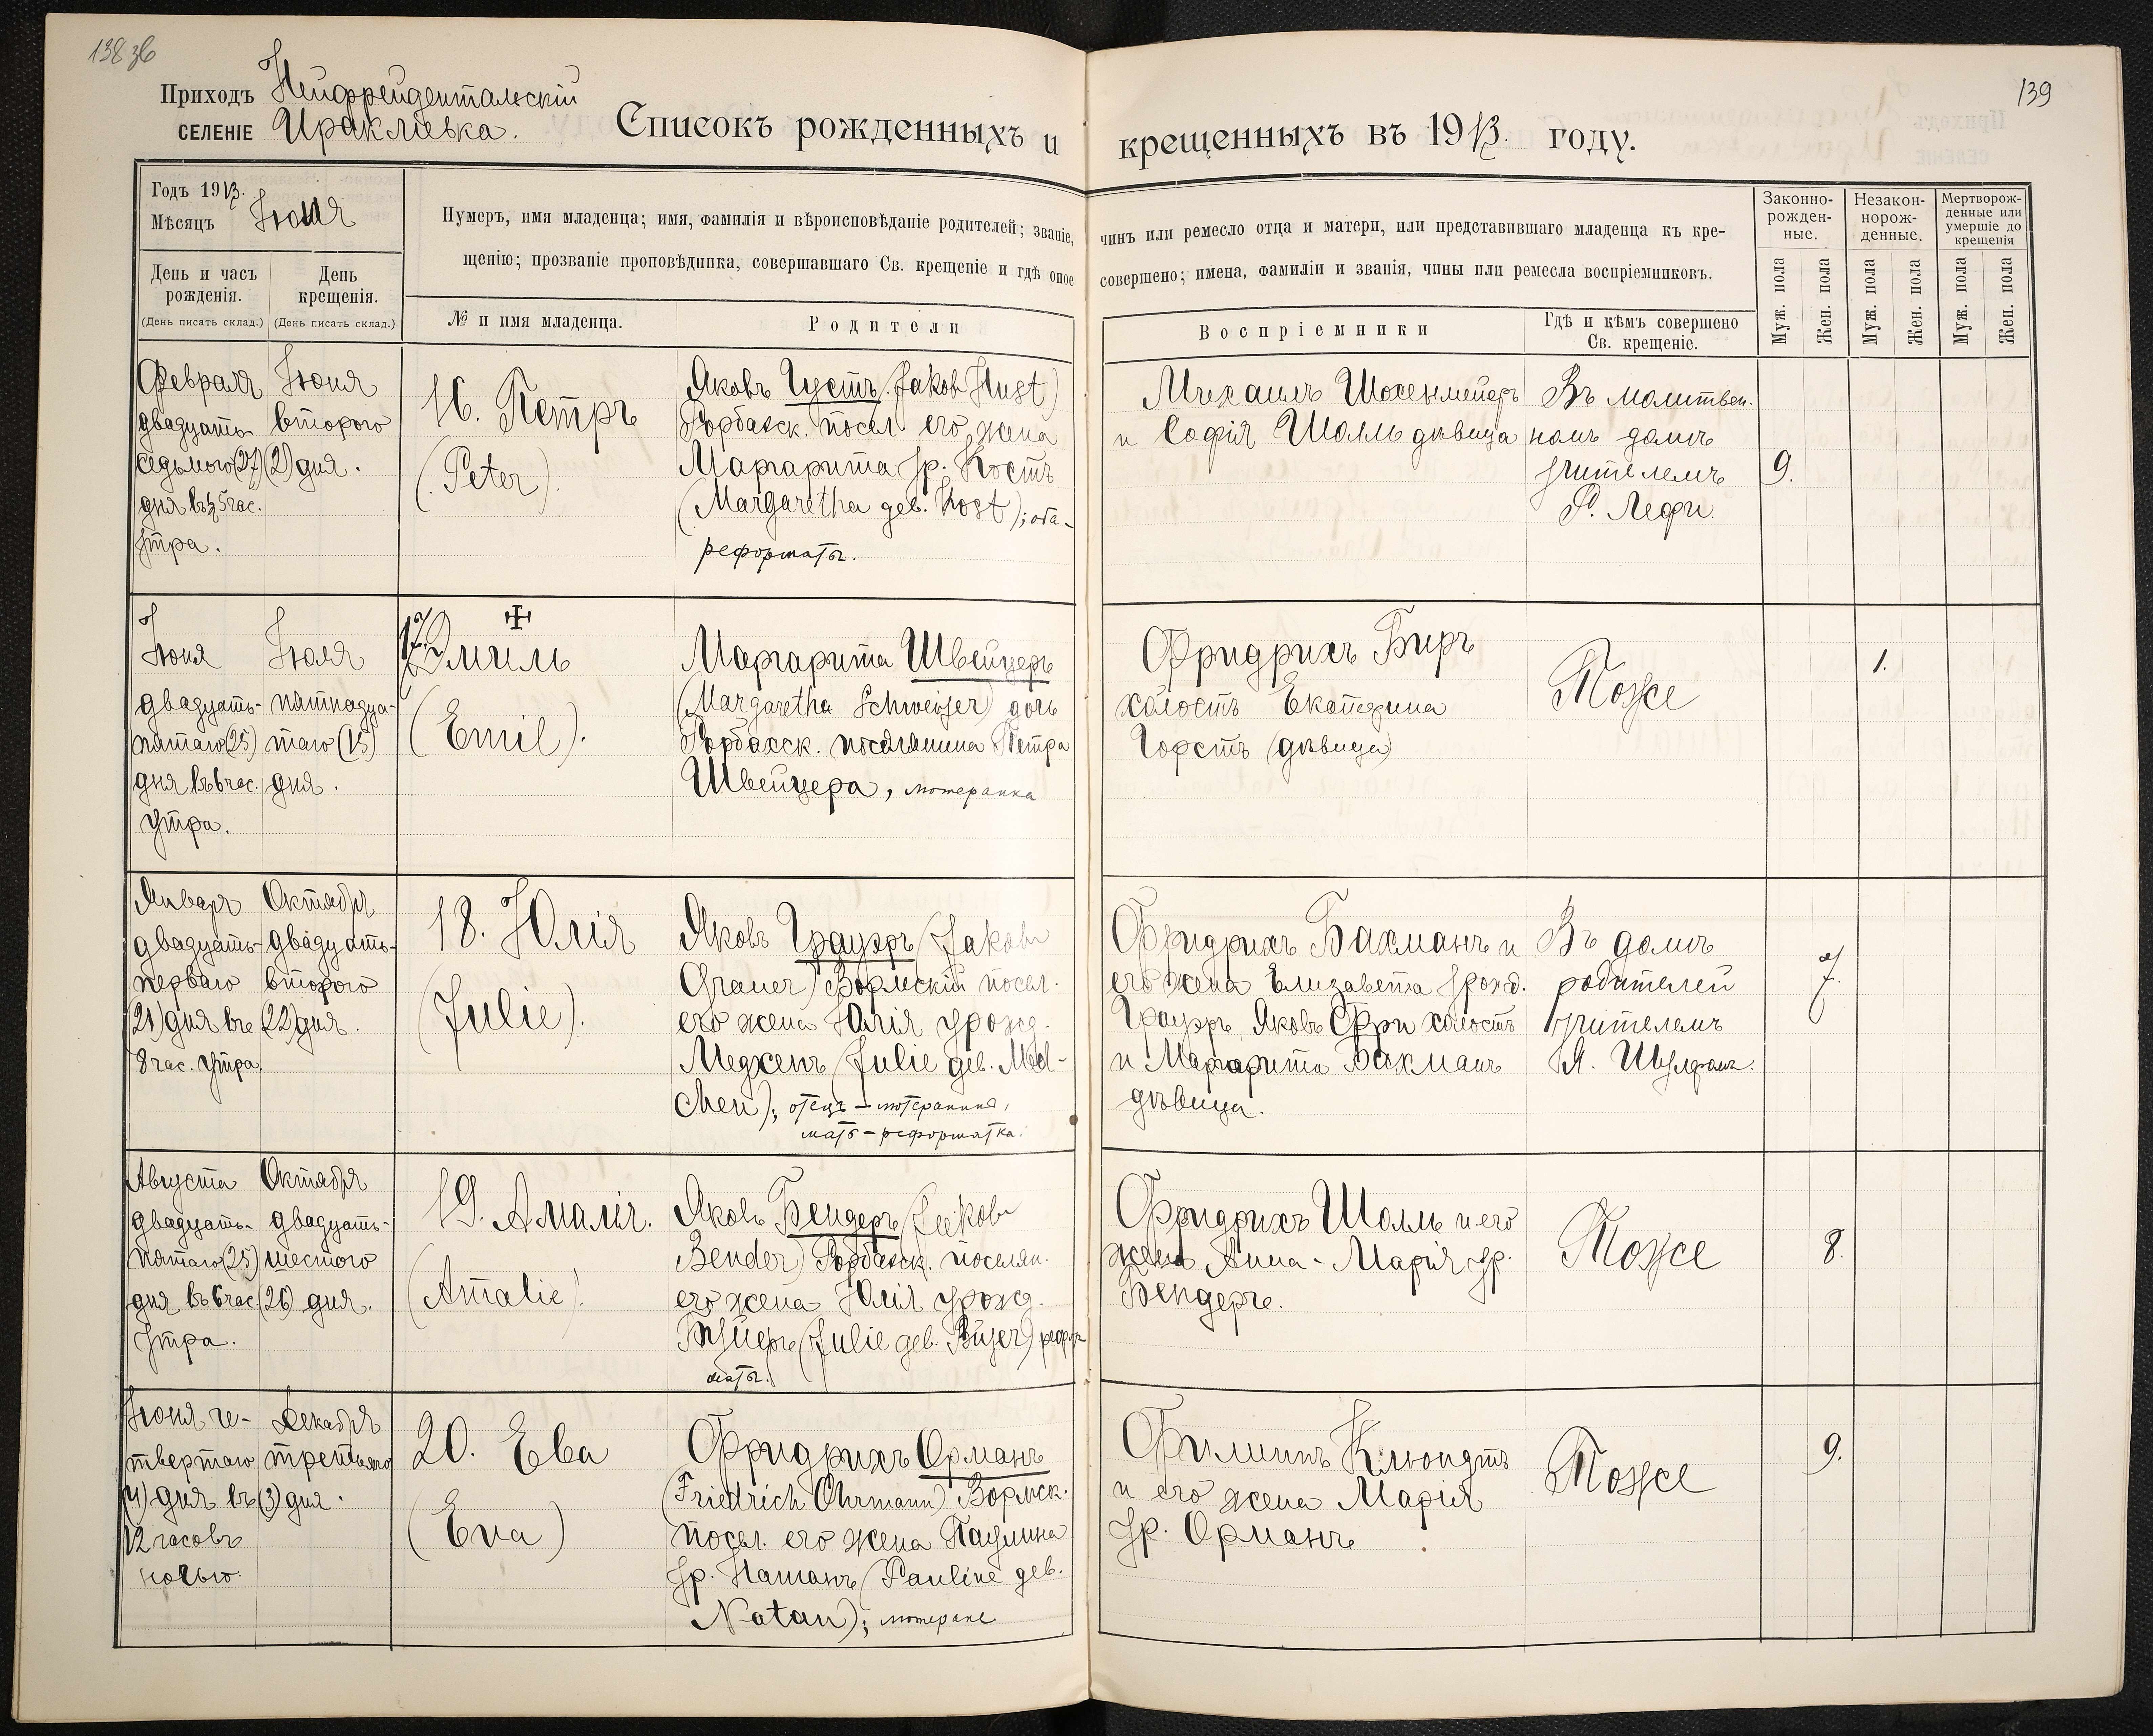 138 зв
139
Приходъ Нейфрейдентальскій
СЕЛЕНІЕ Иракліевка.
Списокъ рожденныхъ и крещенныхъ въ 1913. году.
Годъ 1913.
Мѣсяцъ Іюня
День и часъ рожденія.
(День писать склад.)
День крещенія.
(День писать склад.)
Нумеръ, имя младенца; имя, фамилія и вѣроисповѣданіе родителей; званіе, чинъ или ремесло отца и матери, или представившаго младенца къ кре-
щенію; прозваніе проповѣдника, совершавшаго Св. крещеніе и гдѣ оное совершено; имена, фамиліи и званія, чины или ремесла воспріемниковъ.
№ и имя младенца.
Родители
Воспріемники
Гдѣ и кѣмъ совершено
Св. крещеніе.
Законно-
рожден-
ные.
Незакон-
норож-
денные.
Мертворож-
денные или
умершіе до
крещенія
Муж. пола
Жен. пола
Муж. пола
Жен. пола
Муж. пола
Жен. пола
Февраля
двадцать
седьмого (27)
дня въ 5 час.
утра.
Іюня
второго
(2) дня.
16. Петръ
(Peter).
Яковъ Густъ (Jakob Hust)
Рорбахск. посел его жена
Маргарита ур. Костъ
(Margaretha geb. Kost); оба-
реформаты.
Михаилъ
и Софія Шолль дѣвица
Въ молитвен.
номъ домѣ
учителемъ
9.
Іюня
двадцать-
пятаго (25)
дня въ 6 час.
утра.
Іюля
пятнадца-
таго (15)
дня.
17. Эмиль
(Emil).
Маргарита Швейцеръ
(Margaretha Schweizer) дочь
Рорбахск. поселянина Петра
Швейцера, лютеранка
Фридрихъ Биръ
холостъ Екатерина
Горстъ (дѣвица)
Тоже
1.
Январь
двадцать-
перваго
(21) дня въ
8 час. утра.
Октября
двадцать-
второго
(22) дня.
18. Юлія
(Julie).
Яковъ Грауэръ (Jakob
Grauer) Вормскій посел.
его жена Юлія урожд.
Медхенъ (Julie geb. Mäd-
chen); отецъ – лютеранинъ,
мать – реформатка.
Фридрихъ Бахманъ и
его жена Елизавета урожд.
Грауэръ, Яковъ Фри холостъ
и Маргарита Бахманъ
дѣвица.
Въ домѣ
родителей
учителемъ
7.
Августа
двадцать-
пятаго (25)
дня въ 6 час.
утра.
Октября
двадцать-
шестого
(26) дня.
19. Амалія.
(Amalie).
Яковъ Бендеръ (Jakob
Bender) Рорбахск. поселян.
его жена Юлія урожд.
Фридрихъ Шолль и его
жена Анна-Марія ур.
Бендеръ.
Тоже
8.
Іюня че-
твертаго
(4) дня въ
12 часовъ
ночью.
Декабря
третьяго
(3) дня.
20. Ева
(Eva)
Фридрихъ Орманъ
(Friedrich Ohrmann) Вормск.
посел. его жена Паулина
ур. Натанъ (Pauline geb.
Natan); лютеране
Филиппъ Клюндтъ
и его жена Марія
ур. Орманъ
Тоже
9.